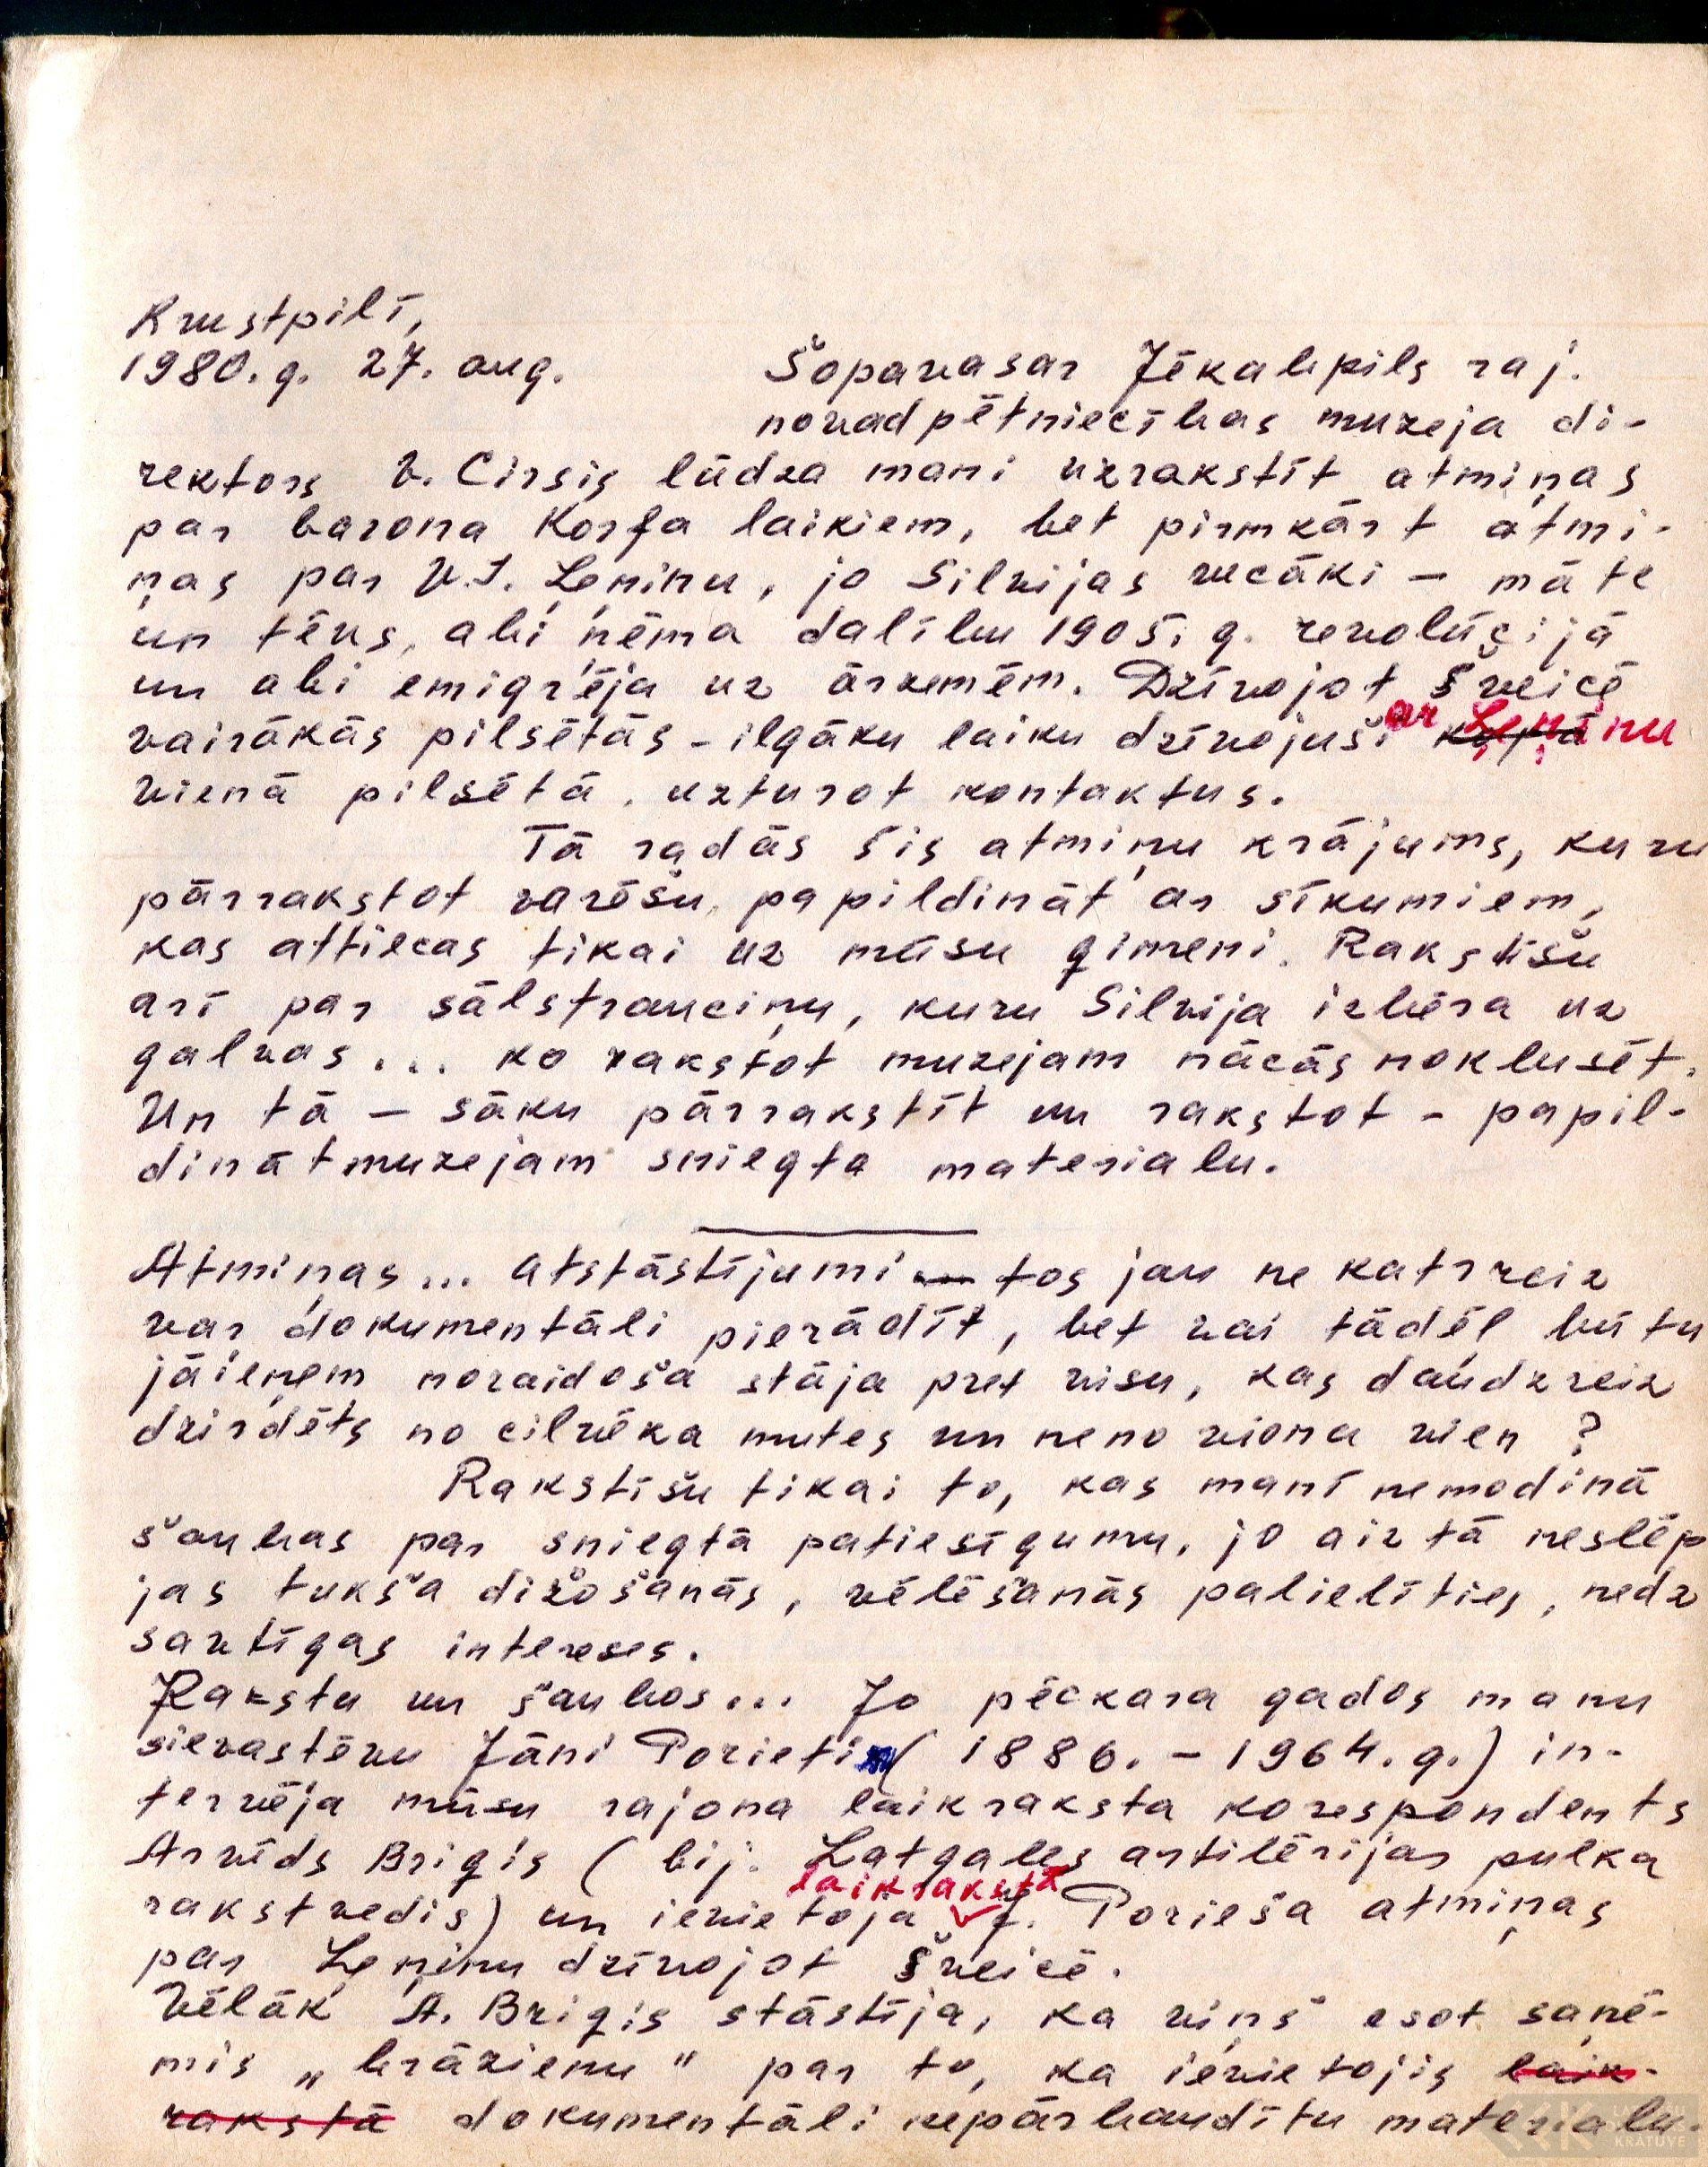 Krustpilī,
1980. g. 27. aug.
Šopavasar Jēkabpils raj.
novadpētniecības muzeja di-
rektors V. Cirsis lūdza mani uzrakstīt atmiņas
par barona Korfa laikiem, bet pirmkārt atmi-
ņas par V.I. Ļeņinu, jo Silvijas vecāki – māte
un tēvs, abi ņēma dalību 1905. g. revolūcijā
un abi emigrēja uz ārzemēm. Dzīvojot Šveicē
vairākās pilsētās – ilgāku laiku dzīvojuši ar Ļeņinu kopā
vienā pilsētā, uzturot kontaktus.
Tā radās šis atmiņu krājums, kuru
pārrakstot varēšu papildināt ar sīkumiem,
kas attiecas tikai uz mūsu ģimeni. Rakstīšu
arī par sālstrauciņu, kuru Silvija izbēra uz
galvas... ko rakstot muzejam nācās noklusēt.
Un tā – sāku pārrakstīt un rakstot – papil-
dināt muzejam sniegto materialu.
Atmiņas... atstāstījumi un tos jau ne katrreiz
var dokumentāli pierādīt, bet vai tādēļ būtu
jāieņem noraidoša stāja pret visu, kas daudzreiz
dzirdēts no cilvēka mutes un ne no viena vien?
Rakstīšu tikai to, kas manī nemodina
šaubas par sniegtā patiesīgumu, jo aiz tā neslēp
jas tukša dižošanās, vēlēšanās palielīties, nedz
savtīgas intereses.
Rakstu un šaubos... Jo pēckara gados manu
sievastēvu Jāni Porieti (1886. – 1964. g.) in-
tervēja mūsu rajona laikraksta korespondents
Arvīds Briģis (bij. Latgales artilērijas pulka
laikrakstā
rakstvedis) un ievietoja J. Porieša atmiņas
par Ļeņinu dzīvojot Šveicē.
Vēlāk A. Briģis stāstīja, ka viņš esot saņē-
mis „brāzienu" par to, ka ievietojis laik-
rakstā dokumentāli nepārbaudītu materialu.